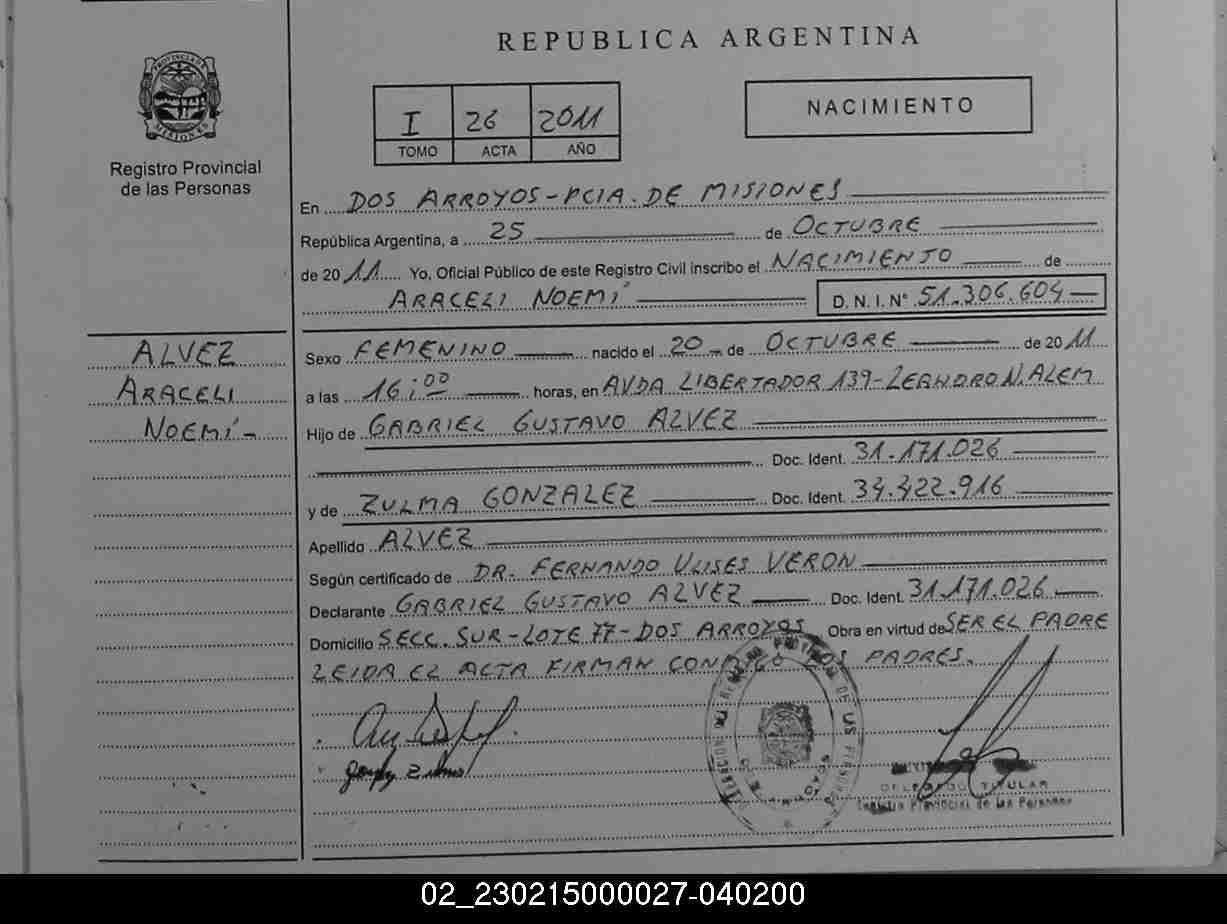 REPUBLICA ARGENTINA
PROVINCIA DE MISIONES
Registro Provincial
de las Personas
I 26 2011
TOMO ACTA AÑO
NACIMIENTO
En DOS ARROYOS-PCIA. DE MISIONES
República Argentina, a 25 de OCTUBRE
de 2011 Yo, Oficial Público de este Registro Civil inscribo el NACIMIENTO de
ARACELI NOEMÍ D. N. I. N° 51.306.604
ALVEZ
ARACELI
NOEMÍ-
Sexo FEMENINO nacido el 20 de OCTUBRE de 2011
a las 16:00 horas, en AVDA LIBERTADOR 139-LEANDRO N. ALEM
Hijo de GABRIEL GUSTAVO ALVEZ
Doc. Ident. 31.171.026
y de ZULMA GONZALEZ Doc. Ident. 34.422.916
Apellido ALVEZ
Según certificado de DR. FERNANDO ULISES VERON
Declarante GABRIEL GUSTAVO ALVEZ Doc. Ident. 31.171.026
Domicilio SECC. SUR-LOTE 77-DOS ARROYOS Obra en virtud de SER EL PADRE
LEIDA EL ACTA FIRMAN CONMIGO LOS PADRES.
DELEGADO TITULAR
Registro Provincial de las Personas
02_230215000027-040200